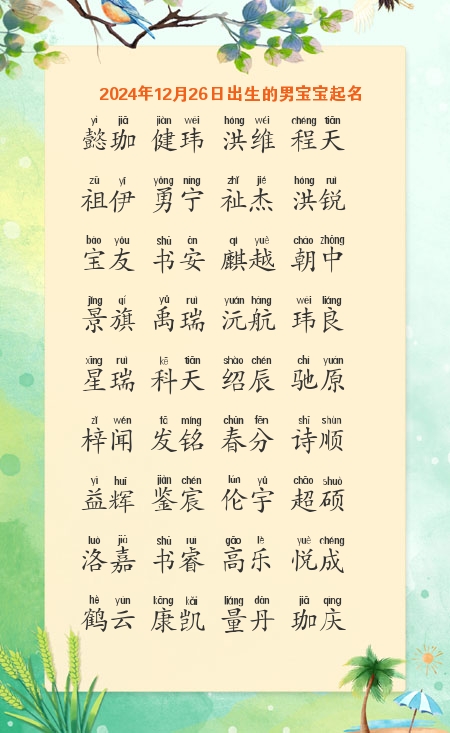 2024年12月26日出生的男宝宝起名
yì jiā jiàn wéi hóng wéi chéng tiān
懿珈 健玮 洪维 程天
zǔ yī yǒng níng zhǐ jié hóng ruì
祖伊 勇宁 祉杰 洪锐
bǎo yǒu shū ān qí yuè cháo zhōng
宝友 书安 麒越 朝中
jǐng qí yǔ ruì yuán háng wéi liáng
景旗 禹瑞 沅航 玮良
xīng ruì kē tiān shào chén chí yuán
星瑞 科天 绍辰 驰原
zǐ wén fā míng chūn fēn shī shùn
梓闻 发铭 春分 诗顺
yì huī jiàn chén lún yǔ chāo shuò
益辉 鉴宸 伦宇 超硕
luò jiā shū ruì gāo lè yuè chéng
洛嘉 书睿 高乐 悦成
hè yún kāng kǎi liáng dān jiā qìng
鹤云 康凯 量丹 珈庆